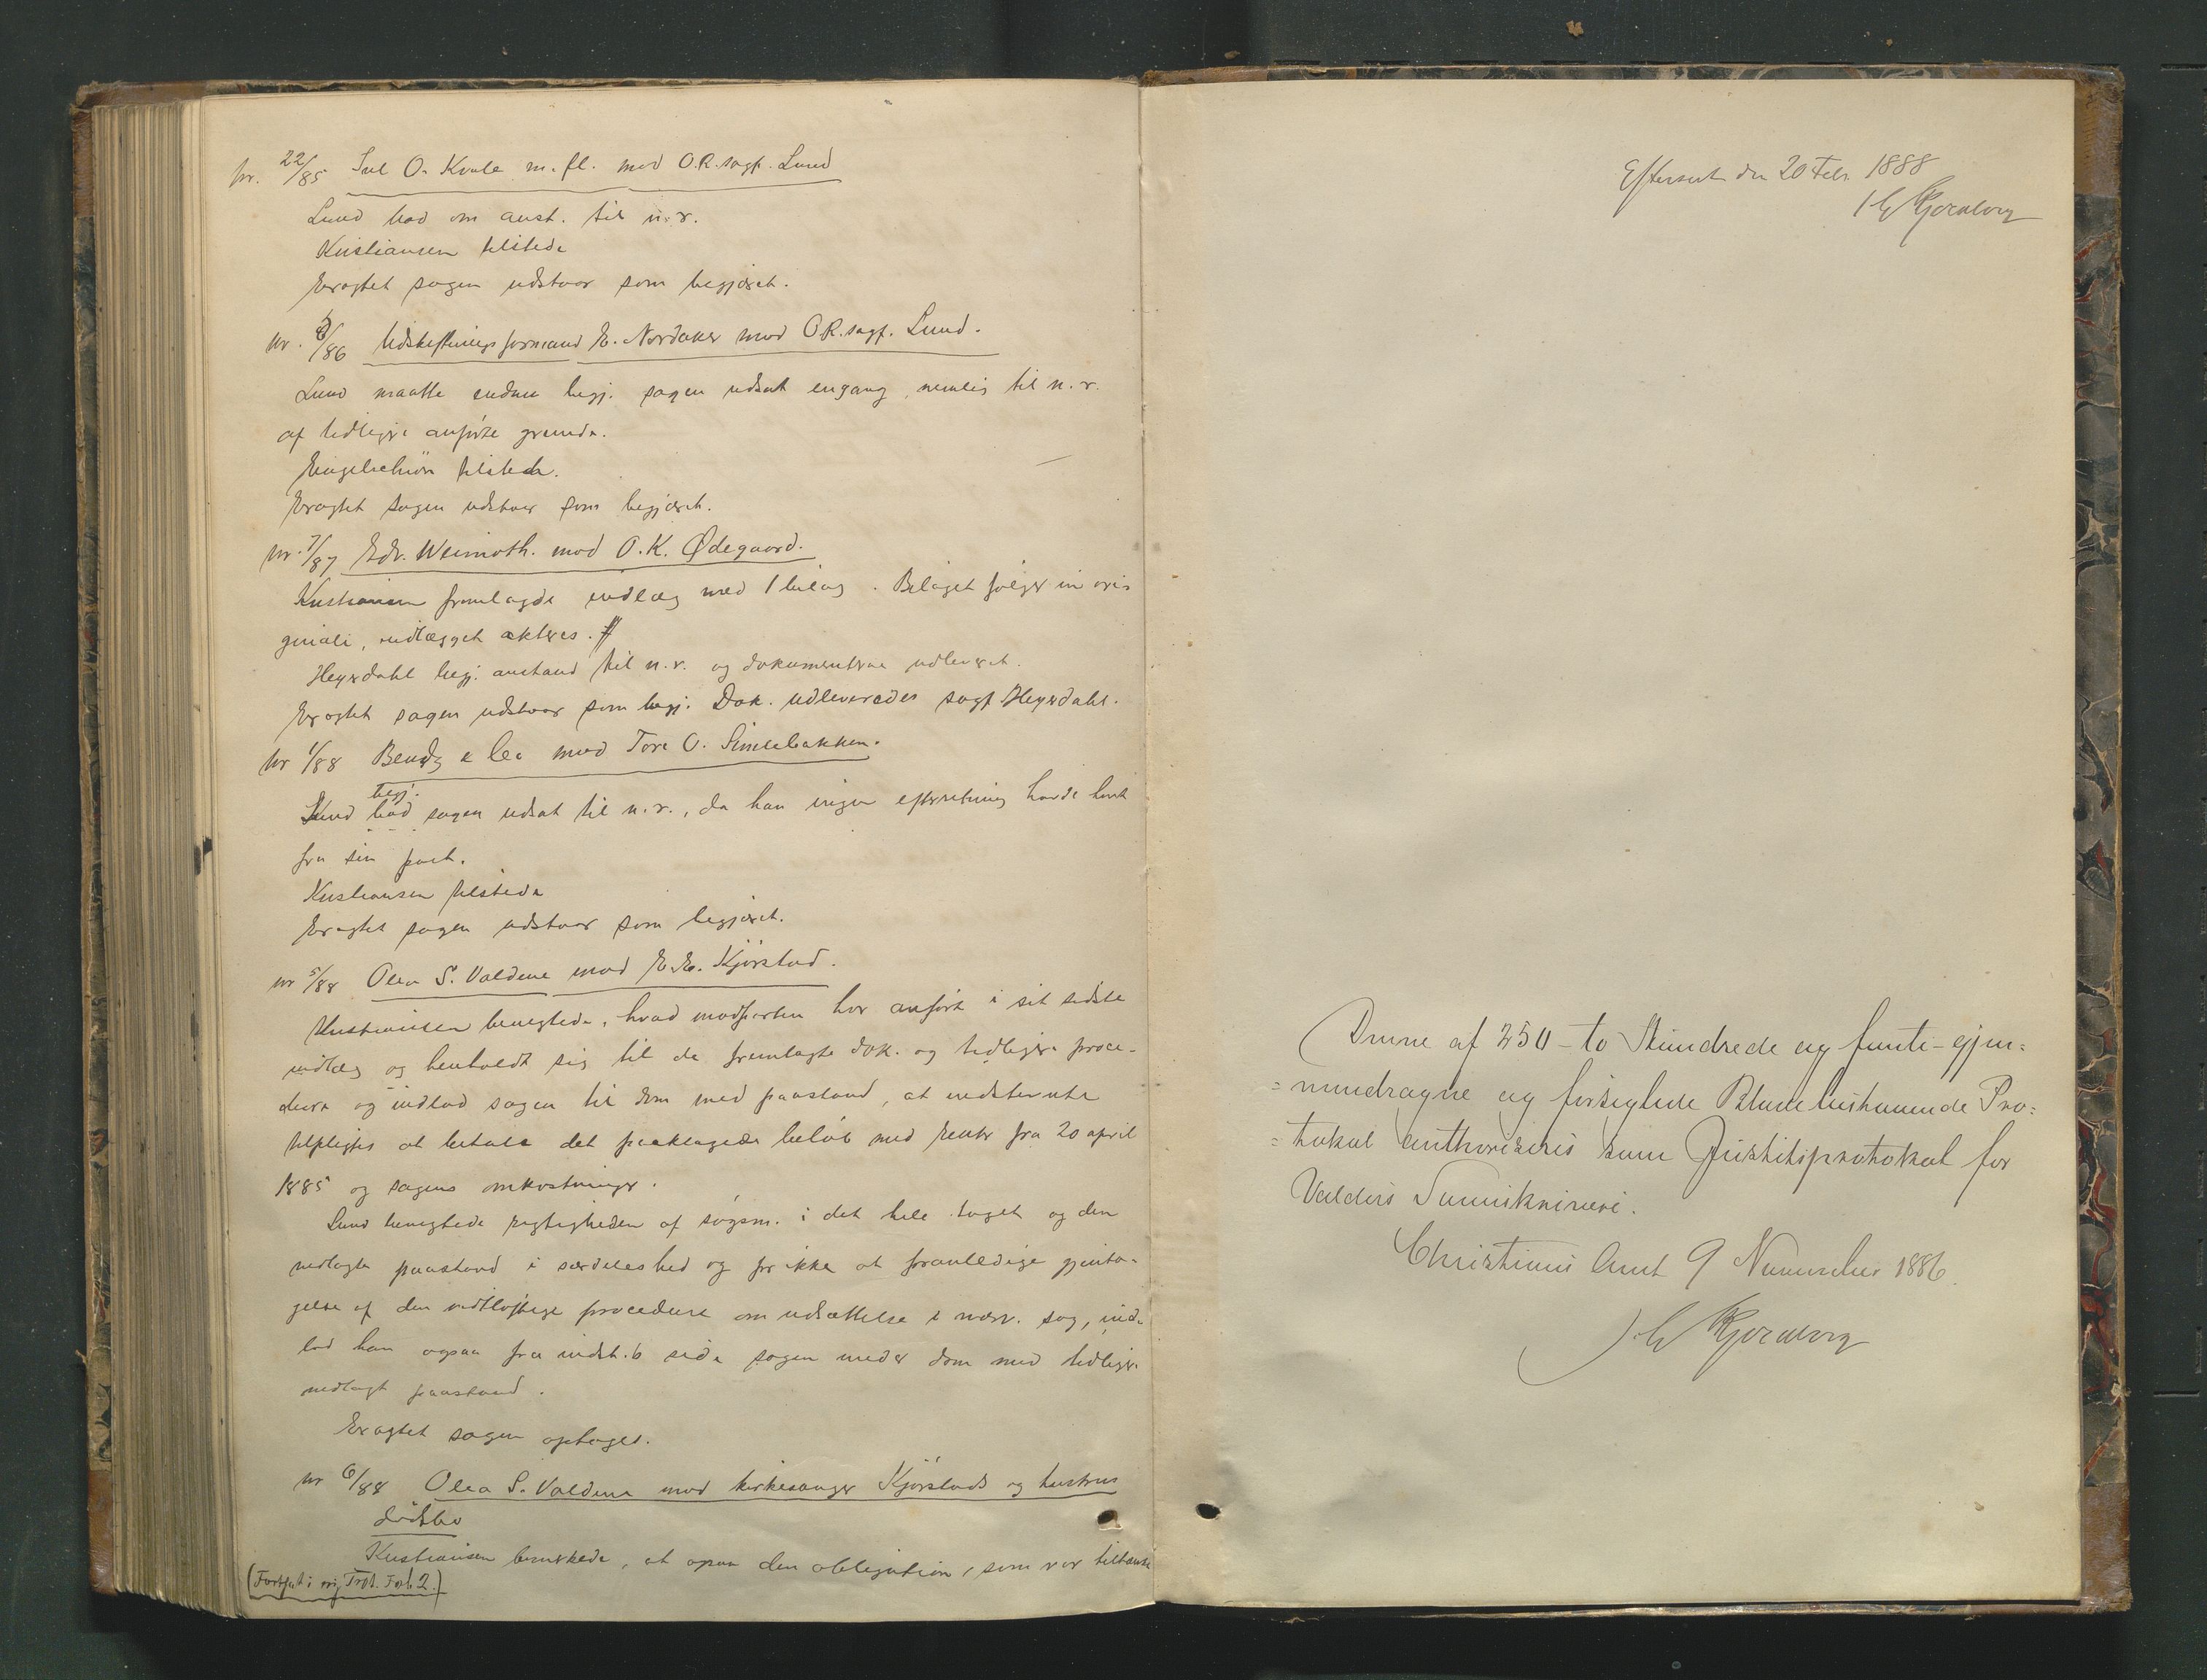 nr. 22/85 Iul O. Kvale m. fl. mod O.R.sagf. Lund
Lund bad om anst. til n. r.
Kristiansen tilstede
Eragtet sagen udstaar som begjæret.
nr. 8/86 Udskiftningsformand E. Nordaker mod O.R.sagf. Lund.
Lund maatte endnu begj. sagen udsat engang, nemlig til n. r.
af tidligere anførte grunde.
Engelschiøn tilstede.
Eragtet sagen udstaar som begjæret.
nr. 7/87 Edv. Weimoth. mod O. K. Ødegaard.
Kristiansen fremlagde indlæg med 1 bilag. Bilaget følger in ori-
ginali, indlægget akteres.
Heyerdahl begj. anstand til n. r. og dokumenterne udleveret.
Eragtet sagen udstaar som begj. Dok. udleveredes sagf. Heyerdahl.
nr 1/88 Bendz & Co mod Tore O. Simlebakken.
begj.
Lund bad sagen udsat til n. r., da han ingen efterretning havde havt
fra sin part.
Kristiansen tilstede
Eragtet sagen udstaar som begjæret.
nr 5/88 Olea S. Valdene mod E. E. Kjørstad.
Kristiansen benegtede, hvad modparten har anført i sit sidste
indlæg og henholdt sig til de fremlagte dok. og tidligere proce-
dure og indlod sagen til dom med paastand, at indstevnte
tilpligtes at betale det paaklagede beløb med renter fra 20 april
1885 og sagens omkostninger.
Lund benegtede rigtigheden af søgsm. i det hele taget og den
nedlagte paastand i særdeleshed og for ikke at foranledige gjenta-
gelse af den vidtløftige procedure om udsættelse i nærv. sag, ind-
lod han ogsaa fra indst.s side sagen under dom med tidligere
nedlagt paastand.
Eragtet sagen optages.
nr 6/88 Olea S. Valdene mod kirkesanger Kjørstads og hustrus
dødsbo
Kristiansen bemerkede, at ogsaa den obligation, som var tiltænkt
(Fortsat i Prot. Fol. 2.)
Efterseet den 20 Febr. 1888
Denne af 250 - to Hundrede og femti - gjen=
=nemdragne og forseglede Blade bestaaende Pro=
=tokol authoriseres som Justitsprotokol for
Valders Sorenskriveri.
Christians Amt 9 November 1886.